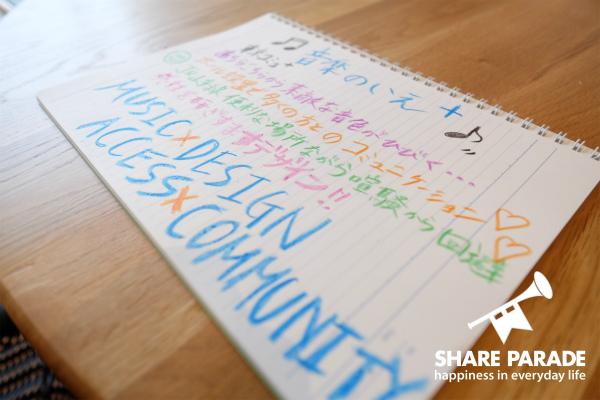 音楽のいえ +
素敵な音色がひびく・・・
多くの方とのコミュニケーション♡♡
便利な場所ながら喧騒から回避
デザイン!!
MUSIC×DESIGN
ACCESS×COMMUNITY
SHARE PARADE
happiness in everyday life